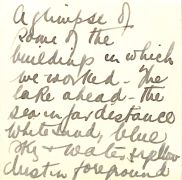 A glimpse of
some of the
buildings in which
we worked - The
lake ahead - the
sea in far distance
white sand, blue
sky & water & yellow
dust in foreground